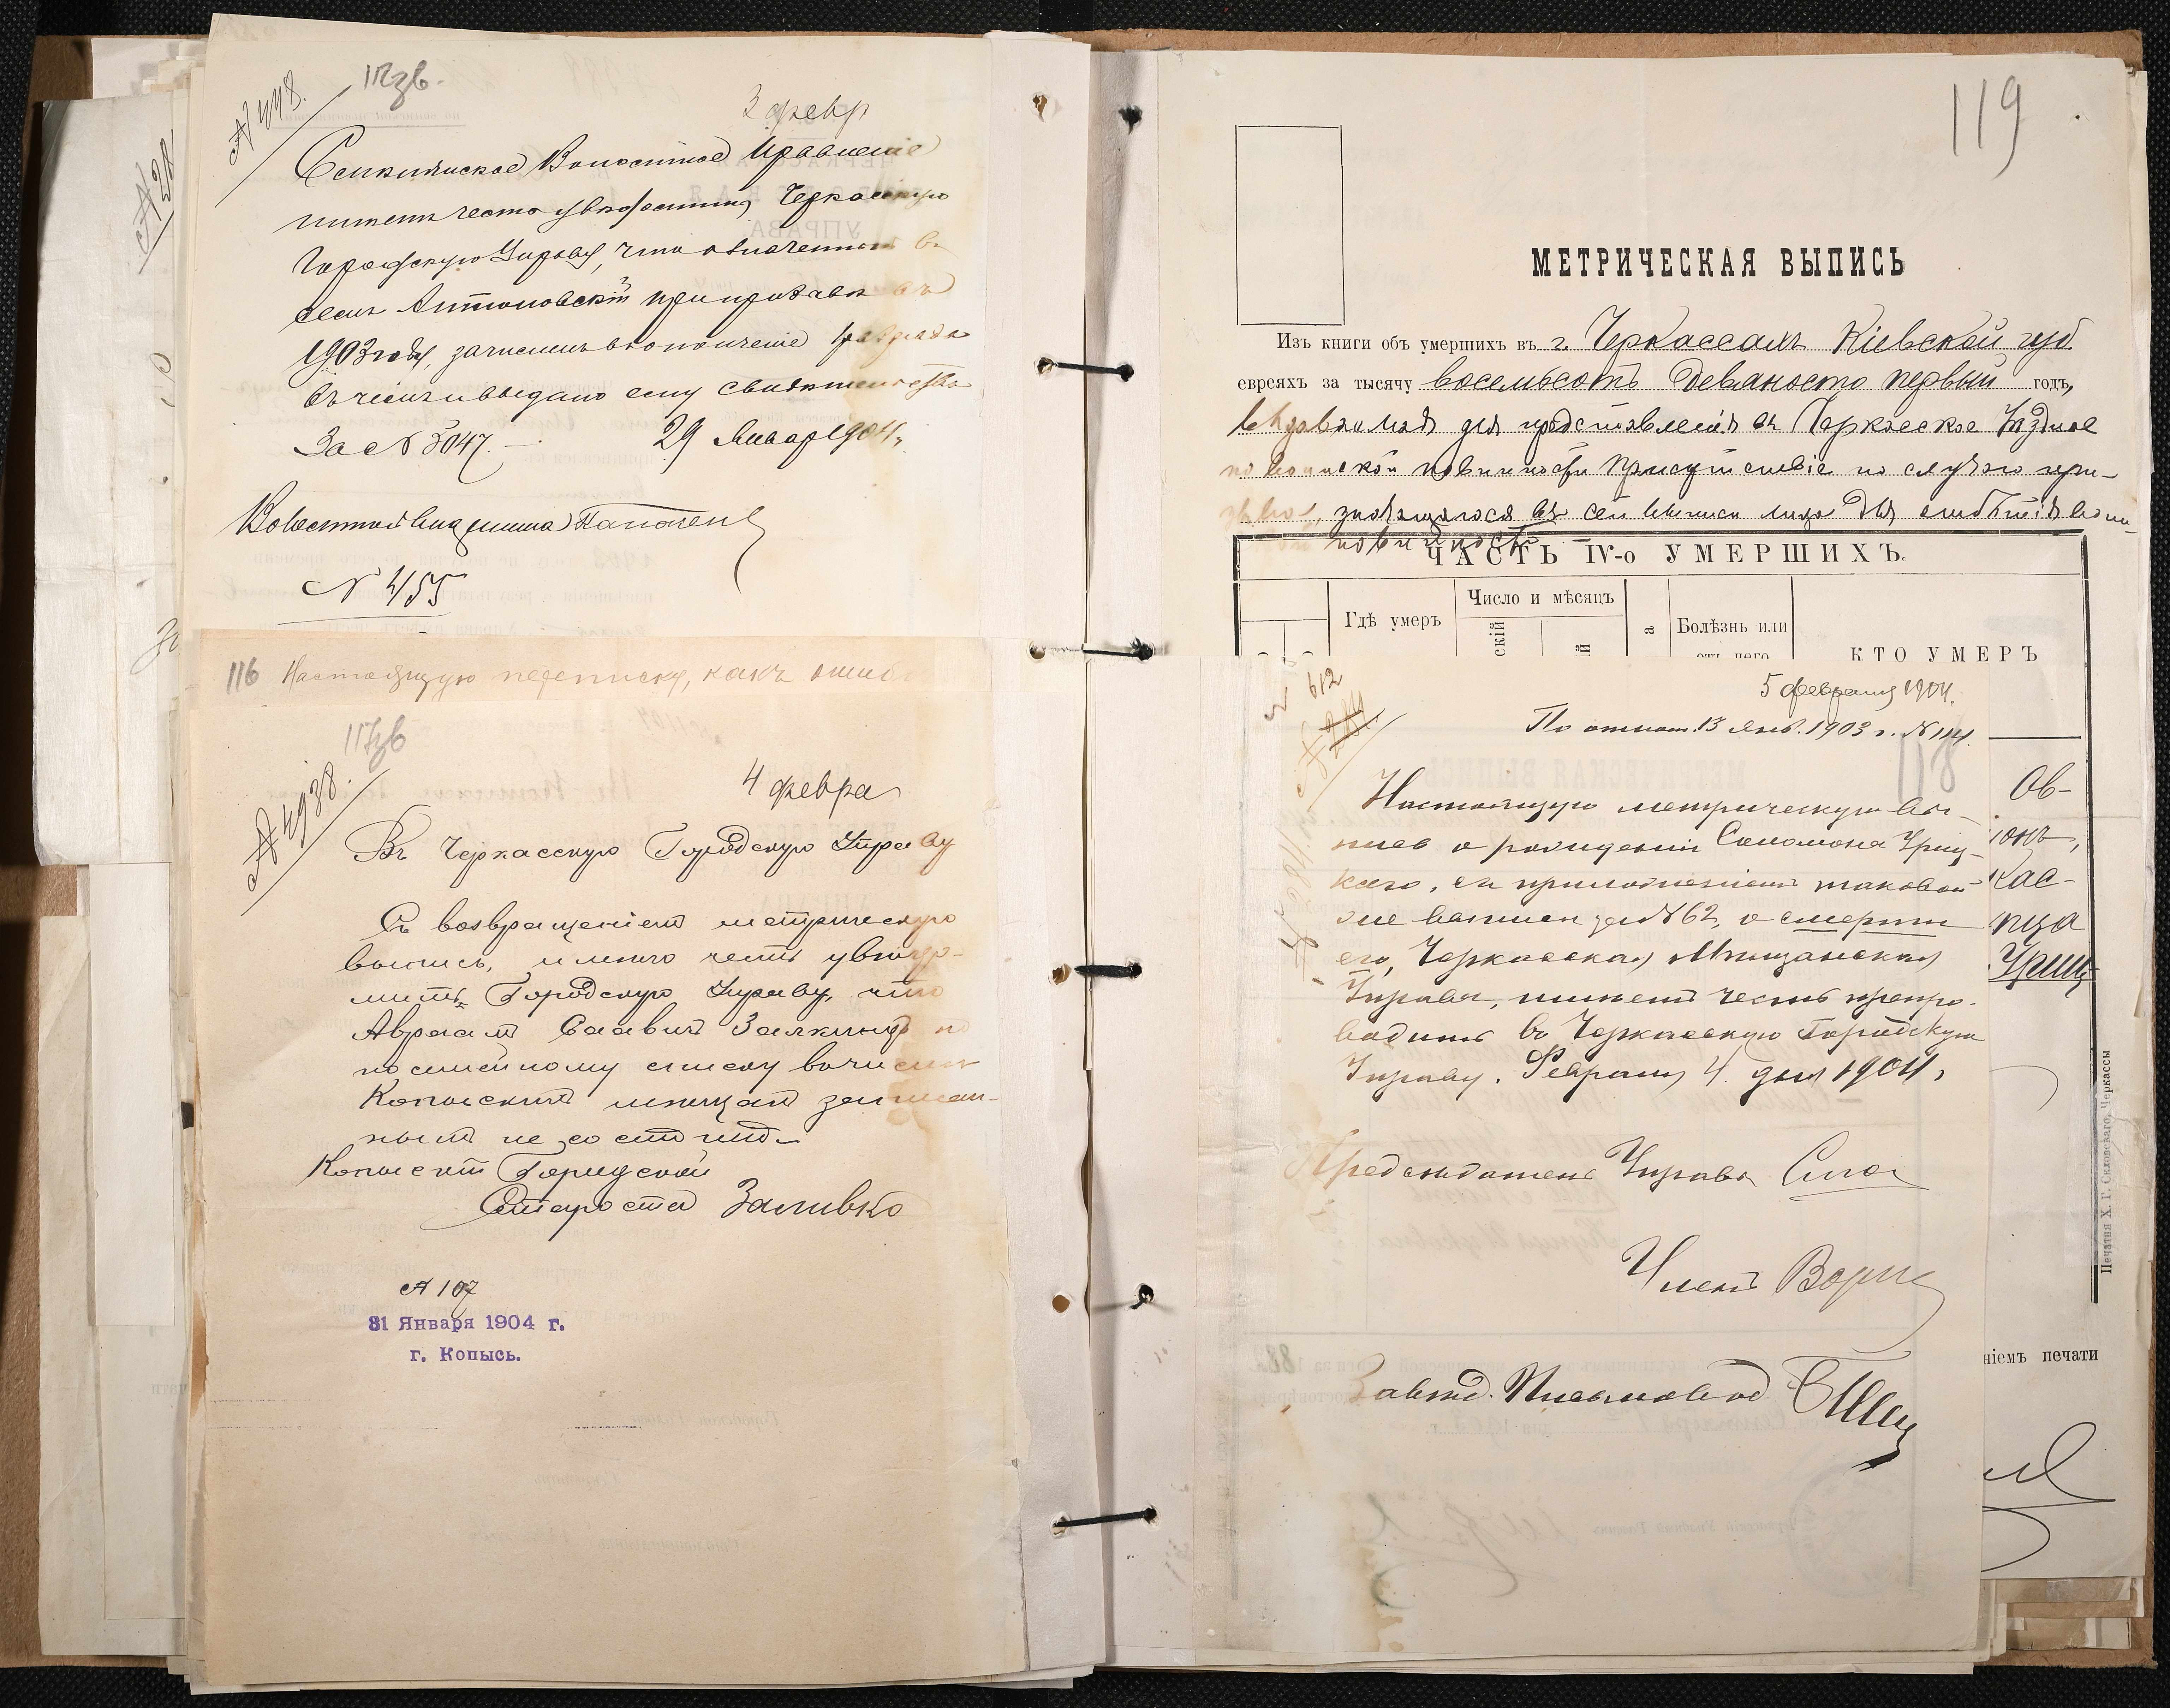 117зв.
3 февр
Волостное Правленіе
имѣетъ честь увѣдомить Черкасскую
Городскую Управу, что означенный в
семъ Антоновскій при призывѣ въ
1903 году, зачисленъ въ ополченіе разряда
и выдано ему свидѣтельство
За № 3047. — 29 Января 1904 г.
Волостной Старшина
№ 455
№ 28
116 Настоящую переписку, какъ ошибо
4 февра
№ 4938.
Въ Черкасскую Городскую Управу
Съ возвращеніемъ метрическую
выпись, имѣю честь увѣдо-
мить Городскую Управу, что
Авраам Саавич Залкинд по
посемейному списку въ числѣ
Копысскихъ мѣщанъ записан-
нымъ не состоитъ.
Копысскій Городской
Староста Заливко
№ 107
31 Января 1904 г.
г. Копысь.
119
МЕТРИЧЕСКАЯ ВЫПИСЬ
Изъ книги объ умершихъ въ г. Черкассахъ Кіевской губ.
евреяхъ за тысячу восемьсотъ девяносто первый годъ,
выдаваемая для представленія въ Черкасское Уѣздное
по воинской повинности Присутствіе по случаю при-
зыва, значащагося въ сей выписи лица для отбытія воин-
ской повинности
ЧАСТЬ IV-о УМЕРШИХЪ.
Гдѣ умеръ
Число и мѣсяцъ
скій
й
а
Болѣзнь или
отъ чего
КТО УМЕРЪ
612
5 февраля 1904.
По отнош. 13 Янв. 1903 г. № 114.
118
Настоящую метрическую вы-
пись о рожденіи Соломона Уриц-
каго, съ приложеніемъ таковой
же выписи за № 62, о смерти
его, Черкасская Мѣщанская
Управа, имѣетъ честь препро-
водить въ Черкасскую Городскую
Управу. Февраля 4 дня 1904 г.
Предсѣдатель Управы
Членъ
Завѣд. Письмовод.
Ов-
кас-
нца
Уриц
ніемъ печати
Печатня Х. Г. Скловскаго, Черкассы